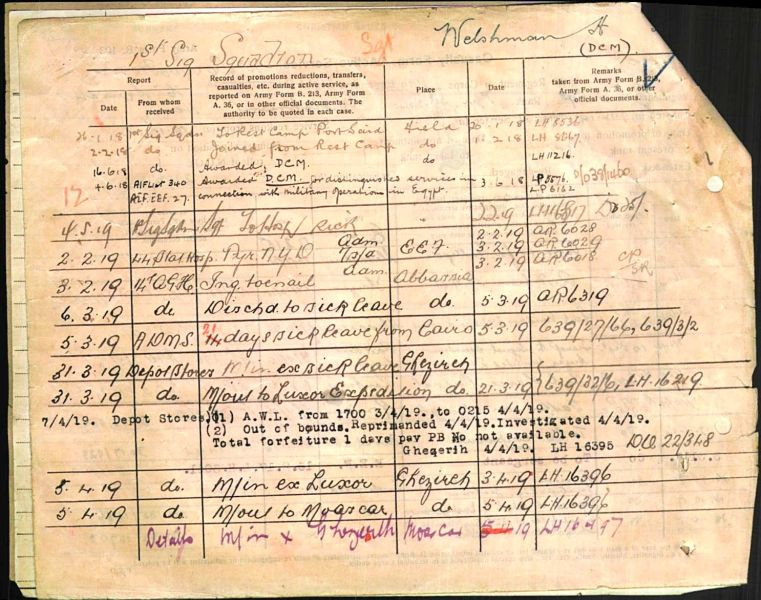 1st Sig Squadron Sgt Welshman H
(DCM).
Report
Date
From whom received
Record of promotions reductions, transfers, casualties, etc. during active service, as reported on Army Form B. 213, Army Form A. 36, or in other official documents. The authority to be quoted in each case.
Place
Date
Remarks
taken from Army Form B. 213, Army Form A. 36, or other official documents.
26.1.18 1st Sig Sqdn To Rest Camp Port Said Field 26.1.18 LH 5536
2.2.18 do Joined from Rest Camp do 2.18
16.6.18 do. Awarded D.C.M. do LH11216.
4.6.18 Alf List 340 Awarded D.C.M. for distinguished services in 3.6.18 LP5576.
12 A.I.F. E.E.F. 27. connection with military operations in Egypt. LP6162
4.5.19 Sig Sqdn Sgt To Hosp Sick " 2.2.19
2.2.19 44 Stat Hosp. Pyr. N.Y.D adm EEF 2.2.19 AR 6028
3.2.19 AR 6029
3.2.19 14 A.G.H. Ing toenail adm Abbassia 3.2.19 AR 6018
6.3.19 do Dischd to sick leave do. 5.3.19 AR 6319
5.3.19 ADMS. 21 14 days sick leave from Cairo 5.3.19 639/27/66, 639/3/2
31.3.19 Depot Stores M/in ex sick leave Ghezireh
31.3.19 do. M/out to Luxor Expedition do. 21.3.19 639/32/6, LH.16219.
7/4/19. Depot Stores. (1) A.W.L. from 1700 3/4/19., to 0215 4/4/19.
(2) Out of bounds. Reprimanded 4/4/19. Investigated 4/4/19.
Total forfeiture 1 days pay PB No not available.
Gheqerih 4/4/19. LH 16395 DO 22348
5.4.19 do. M/in ex Luxor Ghezireh 3.4.19 LH.16396
5.4.19 do. M/out to Moascar do 5.4.19 LH.16396
Details M/in x Ghezireh Moascar 19